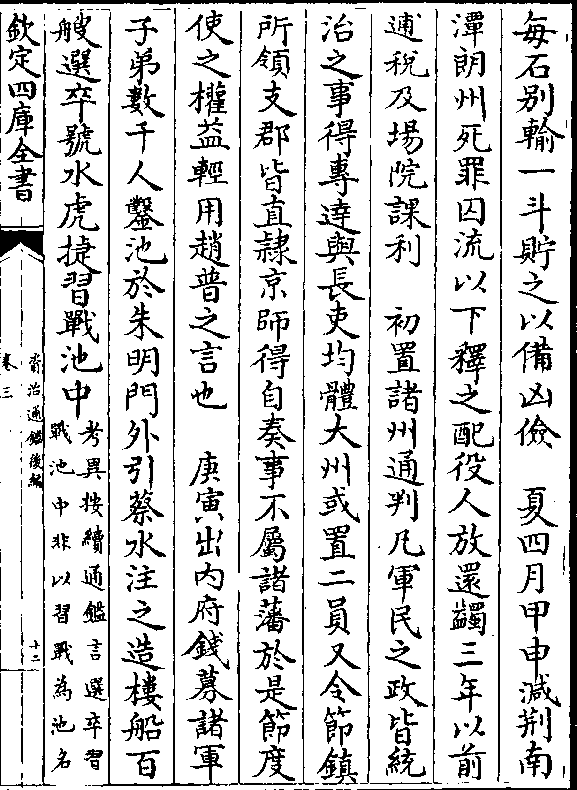 每石别輸一斗貯之以備凶儉　夏四月甲申減荆南
潭朗州死罪囚流以下釋之配役人放還蠲三年以前
逋稅及場院課利　初置諸州通判凡軍民之政皆統
治之事得專達與長吏均體大州或置二員又令節鎮
所領支郡皆直隷京師得自奏事不屬諸藩於是節度
使之權益輕用趙普之言也　庚寅出内府錢募諸軍
子弟數千人鑿池於朱明門外引蔡水注之造樓船百
艘選卒號水虎捷習戰池中考異按續通鑑言選卒習
戰池中非以習戰為池名
欽定四庫全書
資治通鑑後編
卷三
十二